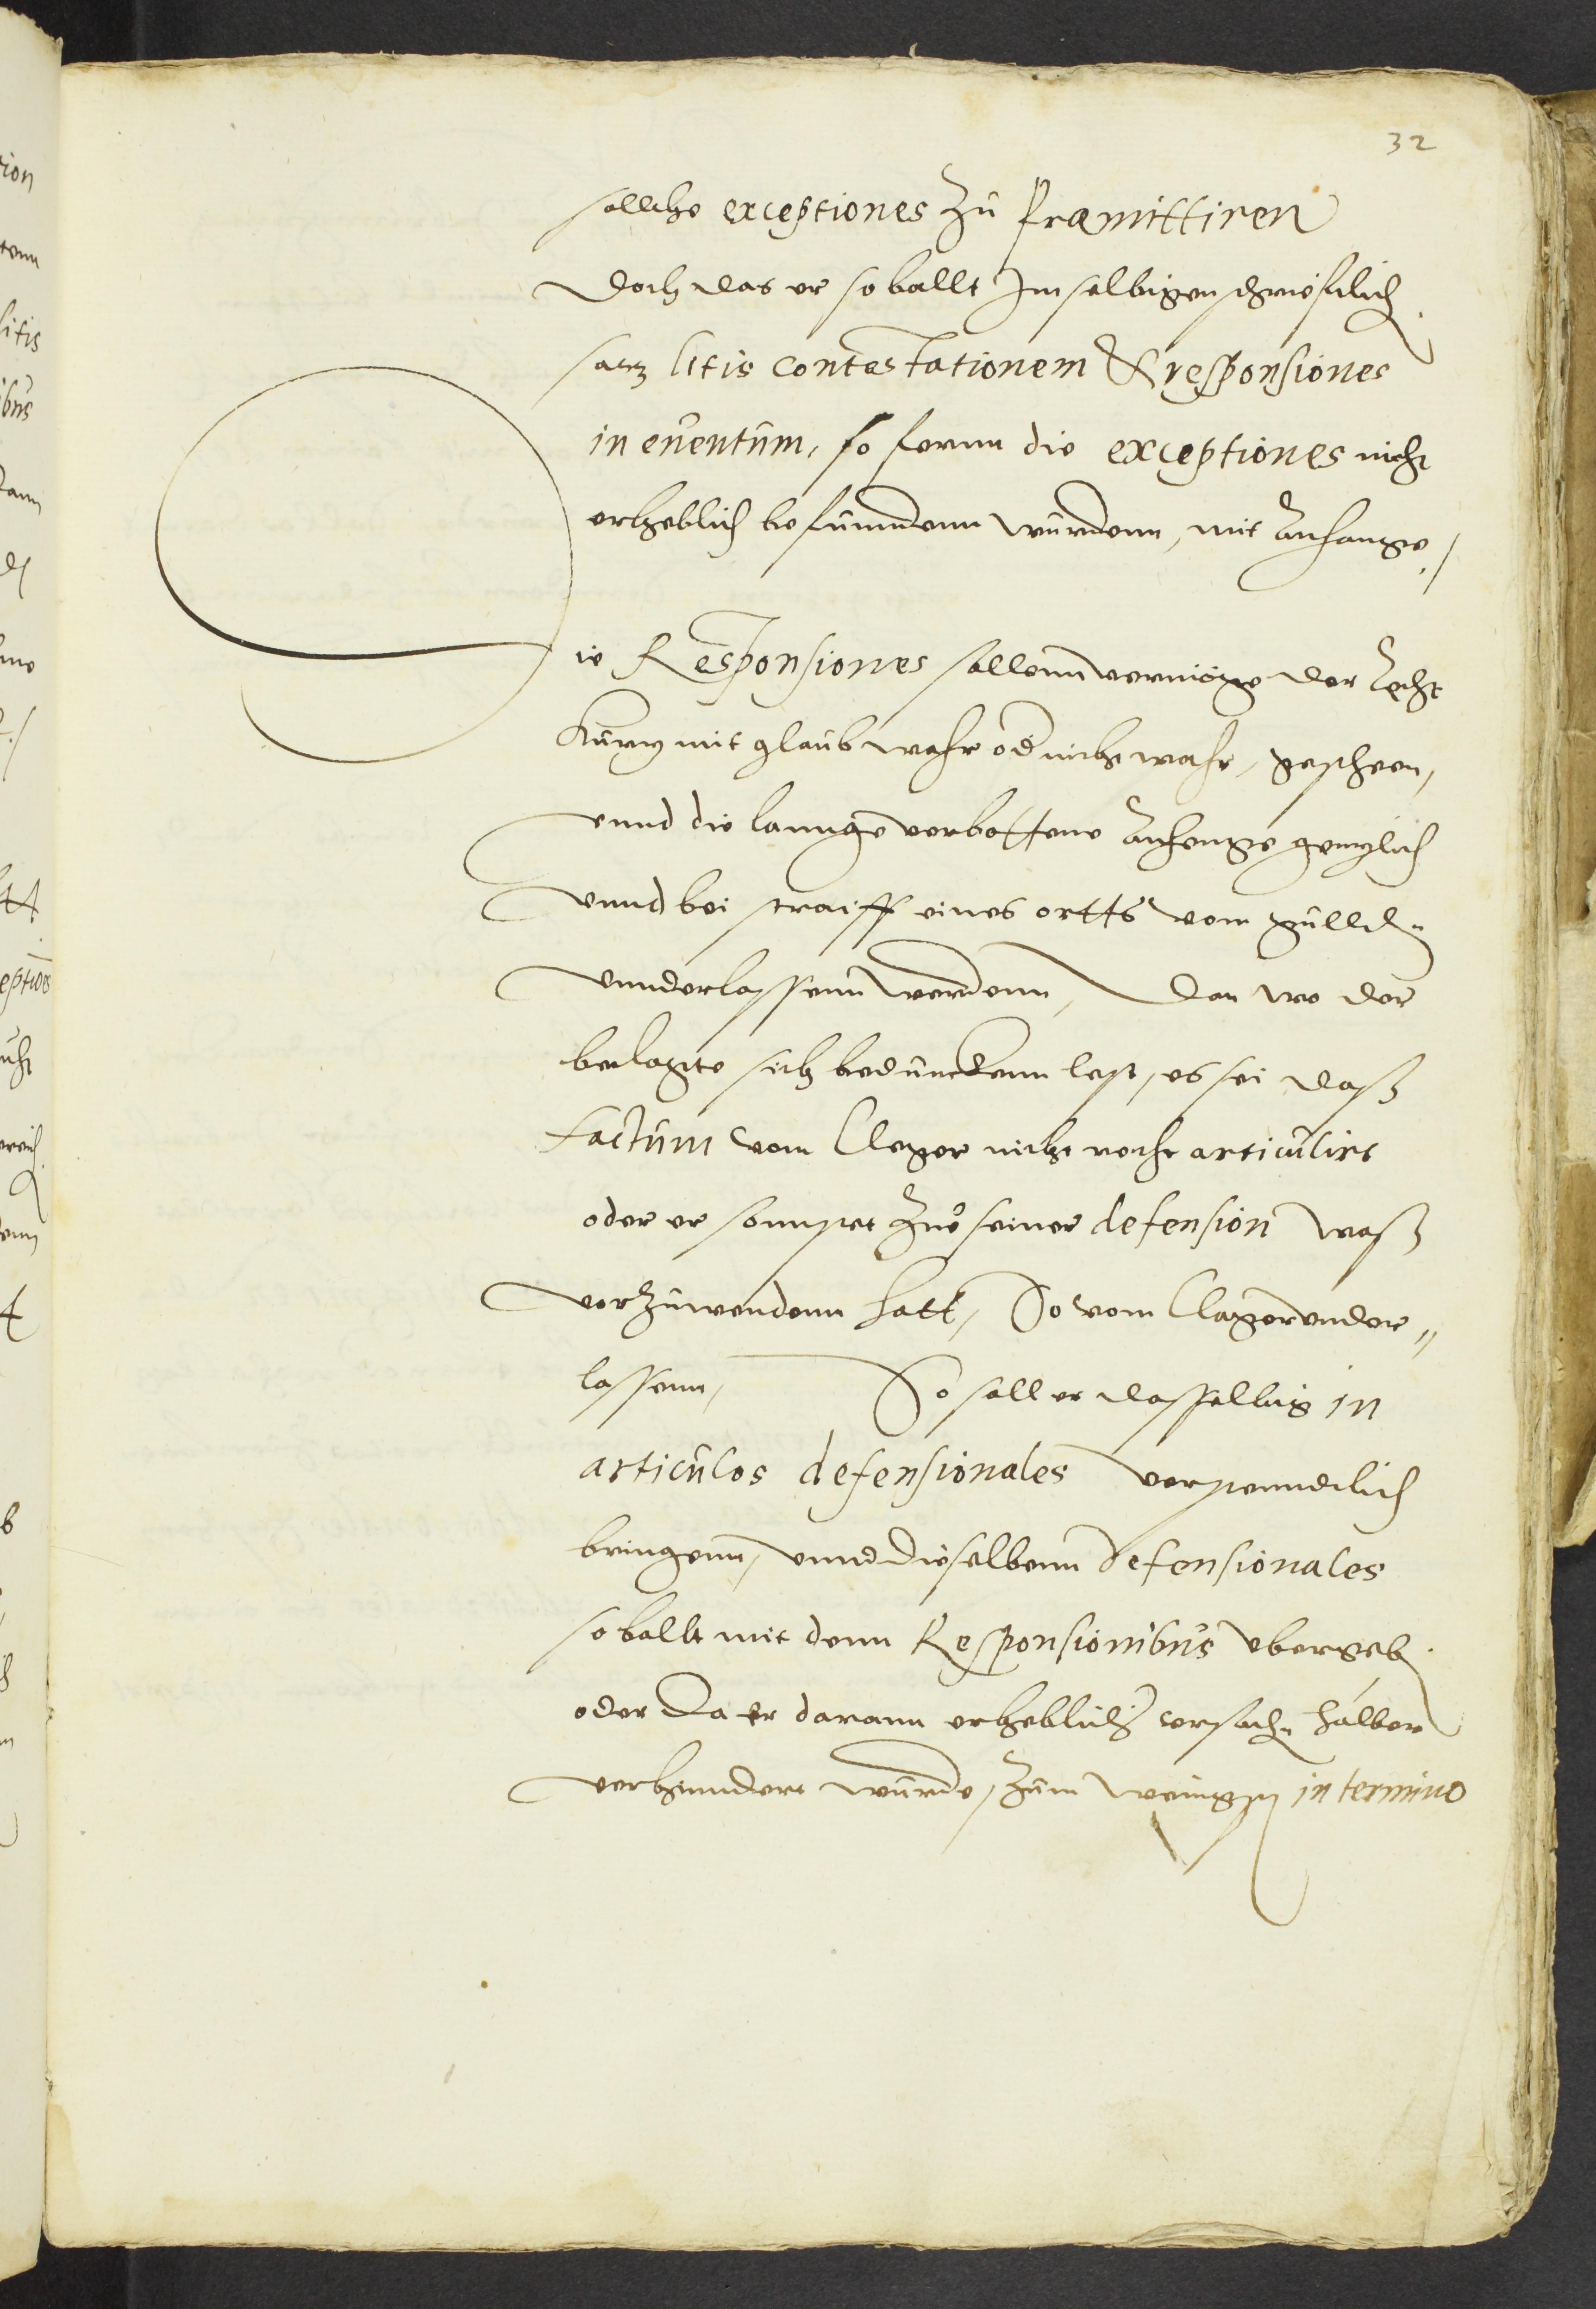 32
sollche exceptiones zu Præmittiren
doch das er so ballt Jm selbigen schriefftlich
satz litis contestationem & responsiones
in euentum, so fernn die exceptiones nicht
erheblich befunndenn wurdenn, mit Anhange./
Die Responsiones sollenn vermöge der Recht
Kurtz mit glaub wahr oder nicht wahr, gescheen,
vnnd die lannge verbottene Anhenge gentzlich
vnnd bei straiff eines ortts vom gulld.
vnnderlassenn werdenn, Dan wo der
beclagte sich bedunckenn lest, es sei daß
factum vom Cleger nicht recht articulirt
oder er sonnst zuo seiner defension waß
vorzuwendenn hatt, So vom Clager vnder„
lassenn, So soll er dasselbig in
articulos defensionales verstenndtlich
bringenn, vnnd dieselbenn defensionales
so ballt mit denn Responsionibus vbergeb.
oder da er darann erheblich. vrsach. halber
verhinndert wurde, zum wenigsten in termino